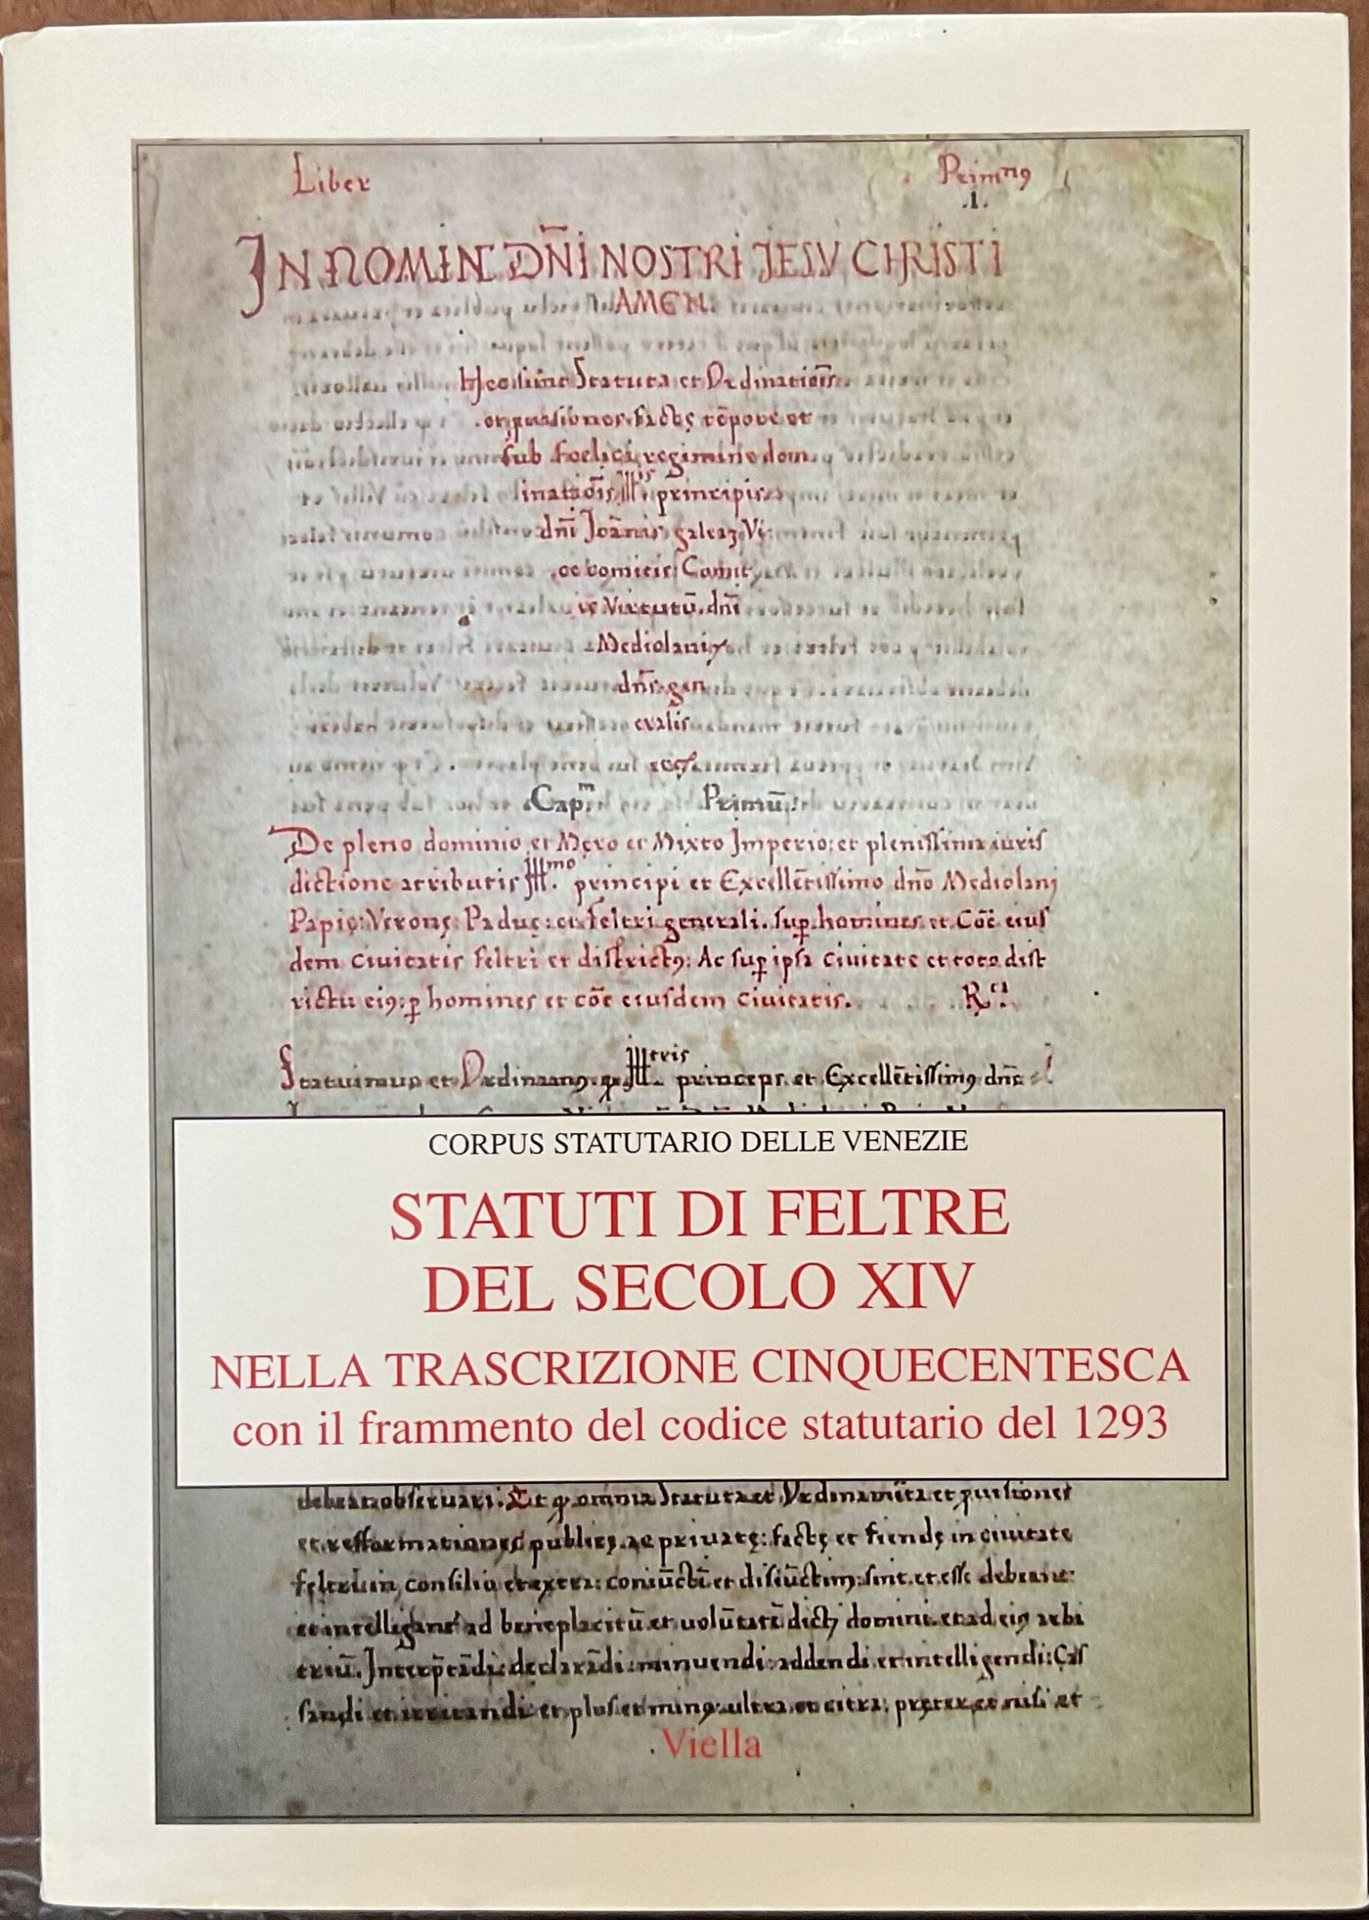 Liber Primus
.1.
IN NOMINE DÑI NOSTRI JESV CHRISTI
AMEN.
Statuta et Ordinatiões
sub foelici regimine dom
principis
dñi Joãnis galeaz Vi
Comit
Virtutũ. dñi
Mediolani
gen
eralis
Cap.m Primũ.
De pleno dominio et Mero et Mixto Imperio: et plenissima iuris
dictione atributis Ill.mo principi et Excellẽtissimo dño Mediolanj
Papię: Veronę: Paduę: et feltri generali. sup. homines et Cõe eius
dem Ciuitatis feltri et districtꝰ: Ac sup ipsa Ciuitate et toto dist
rictu eiꝰ: p homines et cõe eiusdem Ciuitatis. R.ca
Statuimus et Ordinamꝰ. ꝙ Ill.tris princeps et Excellẽtissimꝰ dñs
CORPUS STATUTARIO DELLE VENEZIE
STATUTI DI FELTRE
DEL SECOLO XIV
NELLA TRASCRIZIONE CINQUECENTESCA
con il frammento del codice statutario del 1293
debeat obseruari. Et ꝙ omnia Statuta et Ordinamẽta et puisiones
et refformationes publicę ac priuatę: factę et fiendę in ciuitate
feltri in consilio et extra: coniũctĩ et disiũctim: sint et esse debeant:
et intelligant ad beneplacitũ et volũtatẽ dictj domini et ad eiꝰ arbi
triũ. Interp̃tãdi: declarãdi: minuendi: addendi et intelligendi: Cas
sandi et irritandi: et plus et minꝰ: ultra et citra: pręter et nisi et
Viella